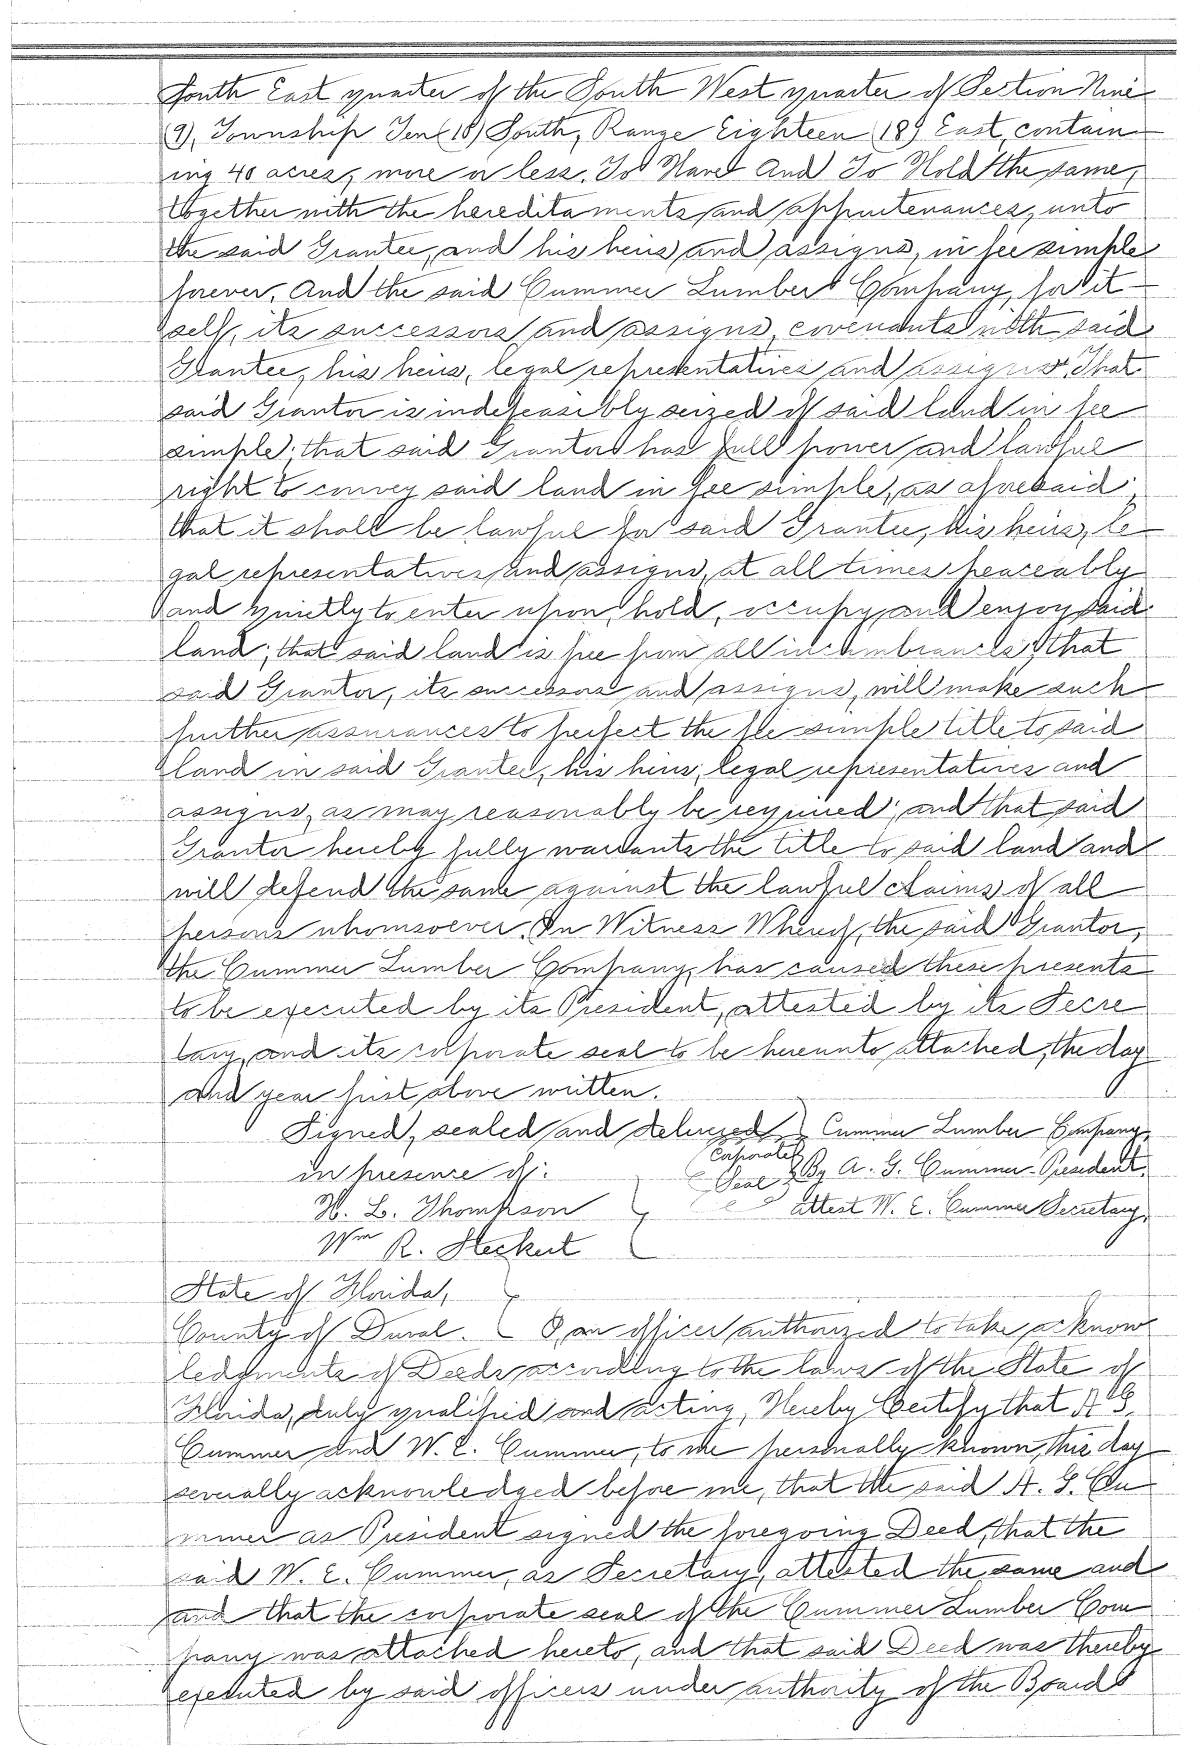 South East quarter of the South West quarter of Section Nine
(9), Township Ten (10) South, Range Eighteen (18) East, contain-
ing 40 acres, more or less. To Have And To Hold the same,
together with the hereditaments and appurtenances, unto
the said Grantee, and his heirs and assigns, in fee simple
forever. And the said Cummer Lumber Company, for it-
self, its successors and assigns, covenants with said
Grantee, his heirs, legal representatives and assigns: That
said Grantor is indefeasibly seized of said land in fee
simple; that said Grantor has full power and lawful
right to convey said land in fee simple, as aforesaid;
that it shall be lawful for said Grantee, his heirs, le-
gal representatives and assigns, at all times peaceably
and quietly to enter upon, hold, occupy and enjoy said
land; that said land is free from all incumbrances; that
said Grantor, its successors and assigns, will make such
further assurances to perfect the fee simple title to said
land in said Grantee, his heirs, legal representatives and
assigns, as may reasonably be required; and that said
Grantor hereby fully warrants the title to said land and
will defend the same against the lawful claims of all
persons whomsoever. In Witness Whereof, the said Grantor,
the Cummer Lumber Company, has caused these presents
to be executed by its President, attested by its Secre
tary, and its corporate seal to be hereunto attached, the day
and year first above written.
Signed, sealed and delivered } Cummer Lumber Company,
in presence of: Corporate Seal By A. G. Cummer President.
H. L. Thompson attest W. E. Cummer Secretary,
Wm R. Steckert
State of Florida,
County of Duval. I, an officer authorized to take acknow
ledgments of Deeds according to the laws of the State of
Florida, duly qualified and acting, Hereby Certify that A G
Cummer and W. E. Cummer, to me personally known, this day
severally acknowledged before me, that the said A. G. Cu
mmer as President signed the foregoing Deed, that the
said W. E. Cummer, as Secretary, attested the same and
and that the corporate seal of the Cummer Lumber Com
pany was attached hereto, and that said Deed was thereby
executed by said officers under authority of the Board